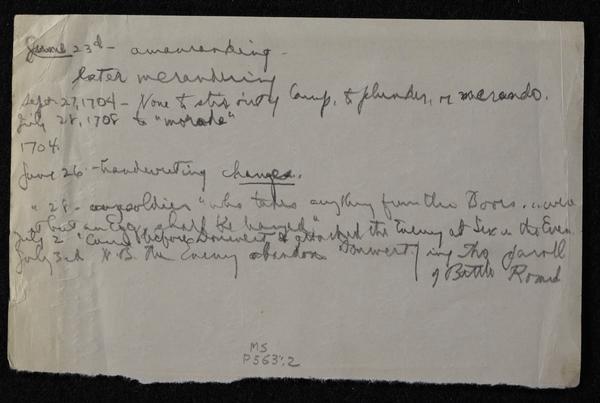 June 23d - amaurauding -
later merandering
Sept 27, 1704 - None to stir out of Camp, to plunder, or merando.
July 28, 1708 to "morode"
1704.
June 26 - handwriting changes.
" 28 - any soldier "who takes anything from the Boors ... were
it but an Egg, shall be hanged"
July 2 "Camp before Donwert & attacked the Enemy at Six in the Even
July 3rd N.B. the Enemy abandon Donwert
of Battle Round
MS
P563:2